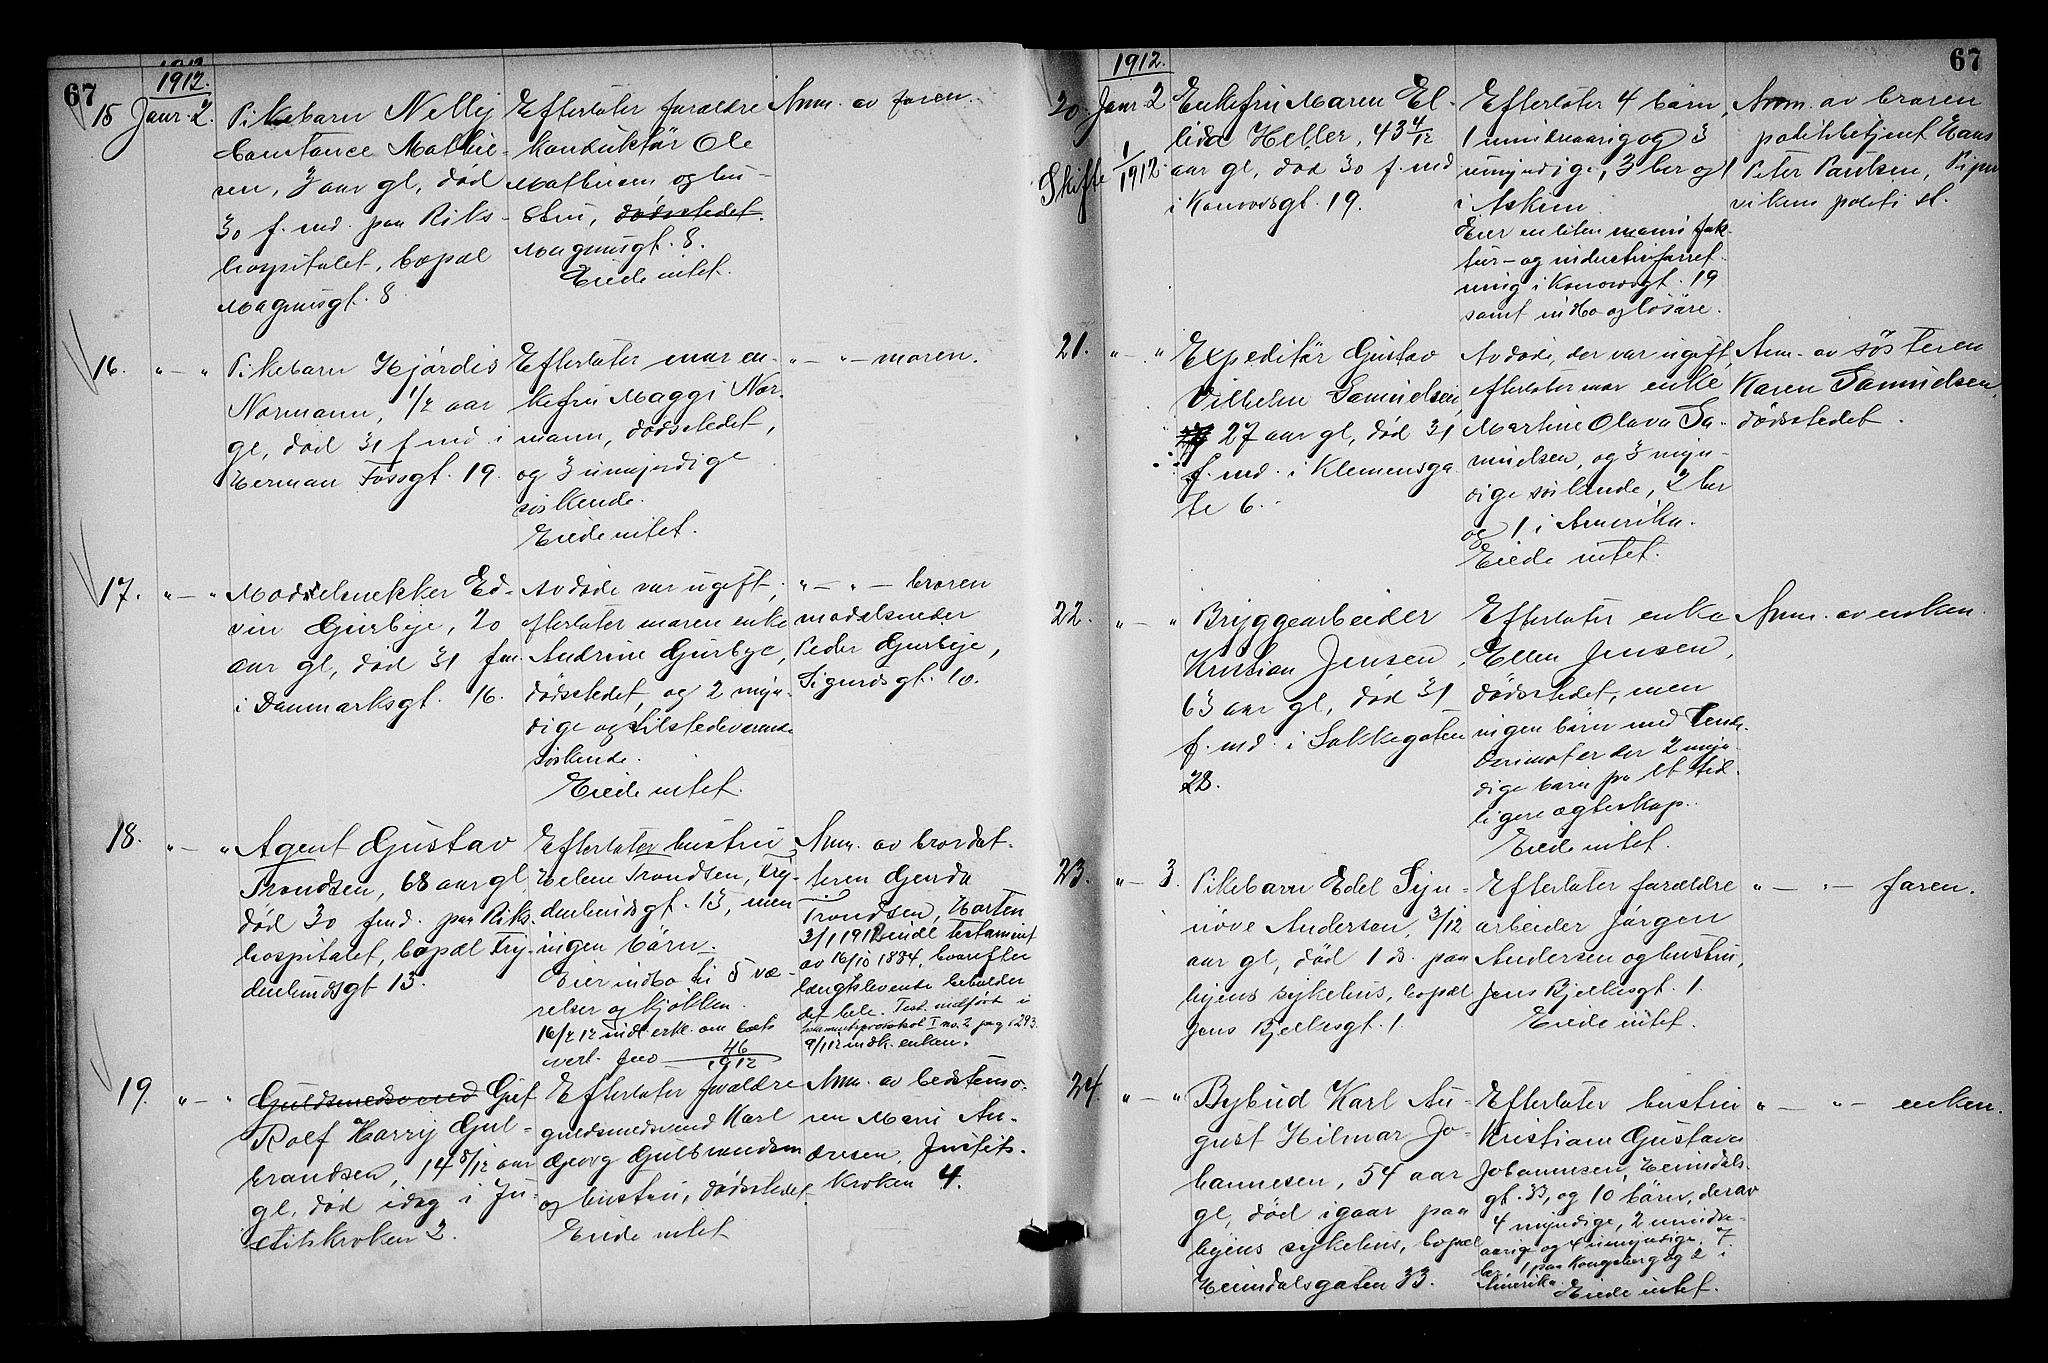 67
1912.
15 Janr. 2.
Pikebarn Nelly
Constance Mathie-
sen, 3 aar gl, død
30 f. md. paa Riks-
hospitalet, bopæl
Magnusgt. 8
Efterlater forældre
konduktør Ole
Mathisen og hu-
stru, dødsstedet.
Magnusgt. 8.
Eiede intet.
Anm. av faren.
16. " — "
Pikebarn Hjördis
Normann, 1/2 aar
gl, død 31 f md i
Herman Fossgt. 19.
Efterlater mor en-
kefru Maggi Nor-
mann, dødsstedet,
og 3 umyndige
søskende.
Eiede intet.
" — " — moren.
17. " — "
Modelsnekker Ed-
vin Gurbye, 20
aar gl, død 31 f m.
i Danmarksgt. 16.
Avdøde var ugift,
efterlater moren enke
Andrine Gurbye,
dødsstedet, og 2 myn-
dige og tilstedeværende
søskende.
Eiede intet.
" — " — broren
modelsneder
Peder Gurbye,
Sigurdsgt. 10.
18. " — "
Agent Gustav
Trondsen, 68 aar gl
død 30 f md. paa Riks-
hospitalet, bopæl Try-
denlundsgt 13.
Efterlater hustru
Helene Trondsen, Try-
denlundsgt. 13, men
ingen børn.
Eier indbo til 5 væ-
relser og kjøkken.
16/2 12 indl. erkl. om boets
overt. Jno 46/1912
Anm. av brordat-
teren Gerda
Trondsen, Horten
3/1 1912 indl testament
av 16/10 1884, hvorefter
længstlevende beholder
det hele. Test. indført i
testamentsprotokol I no. 2 pag. 293.
9/1 12 indk. enken.
19. " — "
Guldsmedsvend Gut
Rolf Harry Gul-
brandsen, 14 8/12 aar
gl, død idag i Ju-
stitskroken 2.
Efterlater forældre
guldsmedsvend Karl
Georg Gulbrandsen
og hustru, dødsstedet.
Eiede intet
Anm. av bedstemo-
ren Marie An-
dresen, Justits-
kroken 4.
67
1912.
20. Janr. 2
Skifte 1/1912.
Enkefru Maren El-
lida Heller, 43 4/12
aar gl, død 30 f. md
i Konowsgt. 19.
Efterlater 4 børn,
1 mindreaarig og 3
umyndige, 3 her og 1
i Askim.
Eier en liten manufak-
tur- og industriforret-
ning i Konowsgt. 19
samt indbo og løsøre.
Anm. av broren
politibetjent Hans
Peter Paulsen, Piper-
vikens politi st.
21. " — "
Expeditør Gustav
Vilhelm Samuelsen,
27 aar gl, død 31
f. md. i Klemensga
te 6.
Avdøde, der var ugift,
efterlater mor enke
Martine Olava Sa-
muelsen, og 3 myn-
dige søskende, 2 her
og 1 i Amerika.
Eiede intet.
Anm. av søsteren
Karen Samuelsen,
dødsstedet.
22. " — "
Bryggearbeider
Kristian Jensen,
63 aar gl, død 31
f. md. i Lakkegaten
28.
Efterlater enke
Ellen Jensen,
dødsstedet, men
ingen børn med hende.
Derimot er der 2 myn-
dige børn fra et tid-
ligere ægteskap.
Eiede intet.
Anm. av enken.
23. " — 3.
Pikebarn Edel Syn-
nøve Andersen, 3/12
aar gl, død 1 ds. paa
byens sykehus, bopæl
Jens Bjelkesgt. 1.
Efterlater forældre
arbeider Jørgen
Andersen og hustru,
Jens Bjelkesgt. 1.
Eiede intet.
" — " — faren.
24. " — "
Bybud Karl Au-
gust Hilmar Jo-
hannesen, 54 aar
gl, død igaar paa
byens sykehus, bopæl
Heimdalsgaten 33.
Efterlater hustru
Kristiane Gustava
Johannesen, Heimdals-
gt. 33, og 10 børn, derav
4 myndige, 2 mindre-
aarige og 4 umyndige. 7
her, 1 paa Kongsberg og 2 i
Amerika. Eiede intet.
" — " — enken.